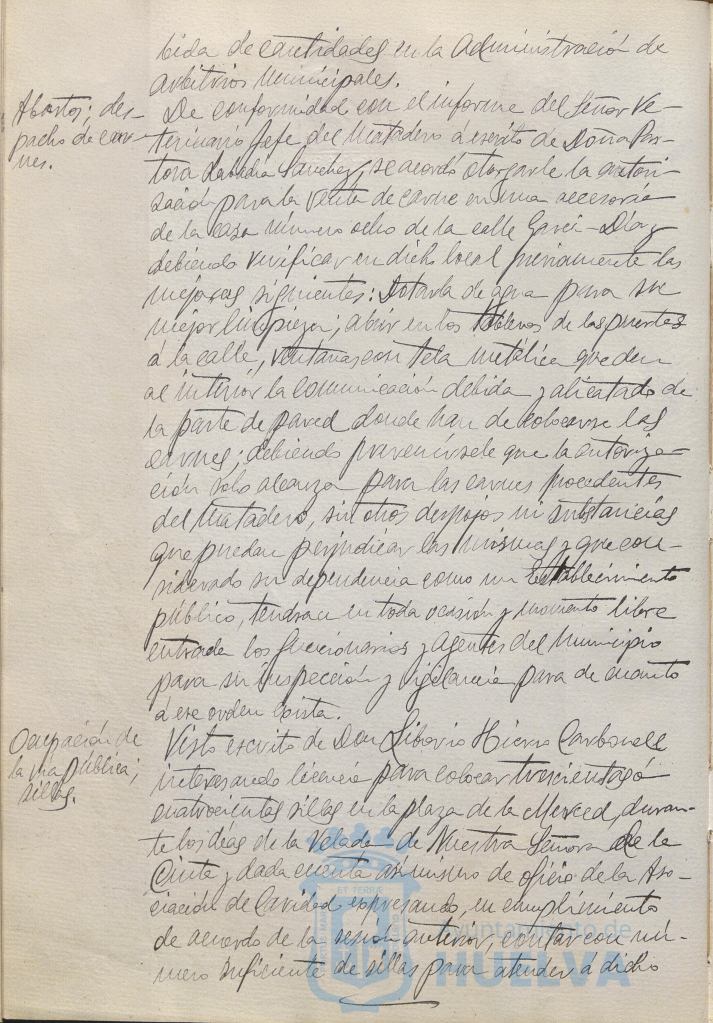 bida de cantidades en la Administración de
arbitrios municipales.
Abastos; des-
pacho de car-
nes.
De conformidad con el informe del Señor Ve-
terinario Jefe del Matadero a escrito de Doña Pas-
tora Sánchez, se acordó otorgarle la autori-
zación para la venta de carne en una accesoria
de la casa número ocho de la calle Garci-Díaz
debiendo verificar en dicho local previamente las
mejoras siguientes: Dotarla de agua para su
mejor limpieza; abrir en los tableros de las puertas
á la calle, ventanas con tela metálica que den
al interior la comunicación debida y alicatado de
la parte de pared donde han de colocarse las
carnes; debiendo prevenírsele que la autoriza-
ción sólo alcanza para las carnes procedentes
del Matadero, sin otros despojos ni substancias
que puedan perjudicar las mismas y que con-
siderado su dependencia como un Establecimiento
público, tendrán en toda ocasión y momento libre
entrada los funcionarios y agentes del Municipio
para su inspección y vigilancia para de cuanto
á ese orden exista.
Ocupación de
la vía pública;
sillas.
Visto escrito de Don Liborio Hierro Carbonell
interesando licencia para colocar trescientas ó
cuatrocientas sillas en la plaza de la Merced, duran-
te los días de la Velada de Nuestra Señora de la
Cinta y dada cuenta asimismo de oficio de la Aso-
ciación de Caridad expresando, en cumplimiento
de acuerdo de la sesión anterior, contar con nú-
mero suficiente de sillas para atender á dicho
ET TERRAE
Ayuntamiento de
HUELVA